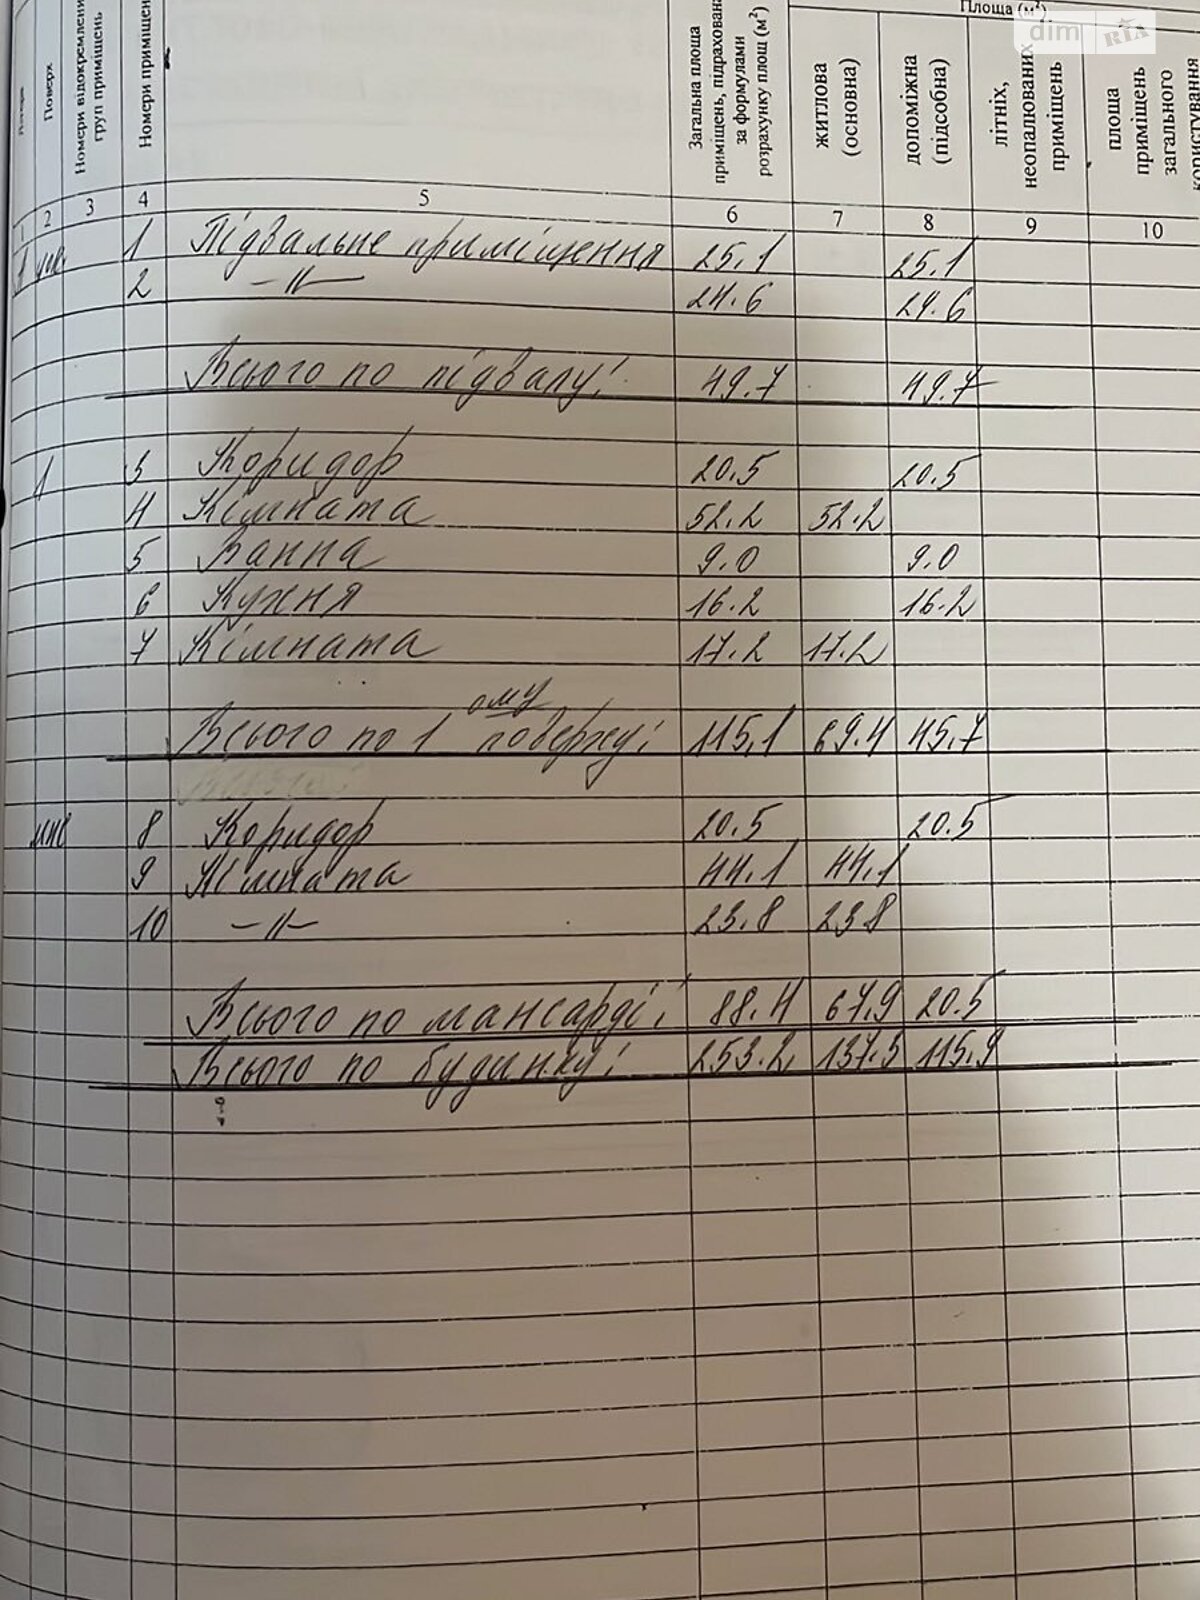 Площа (м²)
dim RIA
Поверх
Номери відокремлени
груп приміщень
Номери приміщен
Загальна площа
приміщень, підрахована
за формулами
розрахунку площ (м²)
житлова
(основна)
допоміжна
(підсобна)
літніх,
неопалюваних
приміщень
площа
приміщень
загального
користування
1 2 3 4 5 6 7 8 9 10
1 Підвальне приміщення 25.1 25.1
2 -//- 24.6 24.6
Всього по підвалу: 49.7 49.7
1 3 Коридор 20.5 20.5
4 Кімната 52.2 52.2
5 Ванна 9.0 9.0
6 Кухня 16.2 16.2
7 Кімната 17.2 17.2
Всього по 1 ому поверху: 115,1 69.4 45.7
мнс 8 Коридор 20.5 20.5
9 Кімната 44.1 44.1
10 -//- 23.8 23 8
Всього по мансарді: 88.4 67,9 20.5
Всього по будинку: 253.2 137.3 115.9